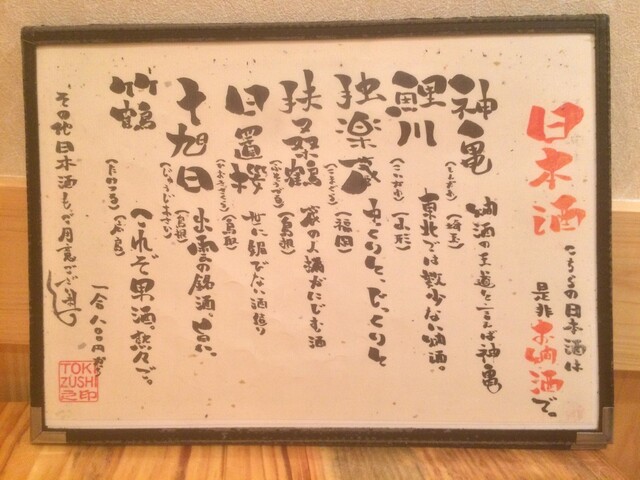 日本酒
こちらの日本酒は
是非お燗酒で。
神亀
(しんかめ)
(埼玉)
燗酒の王道と言えば神亀
鯉川
(こいかわ)
(山形)
東北では数少ない燗酒。
独楽蔵
(こまぐら)
(福岡)
ゆっくりと、じっくりと
扶桑鶴
(ふそうづる)
(島根)
蔵の人柄がにじむ酒
日置桜
(ひおきざくら)
(鳥取)
世に媚びない酒造り
十旭日
(じゅうじあさひ)
(島根)
出雲の銘酒、旨い。
竹鶴
(たけつる)
(広島)
これぞ男酒。悠々で。
その他日本酒もご用意ござい〼
一合八〇〇円から
TOK
ZUSHI
之印